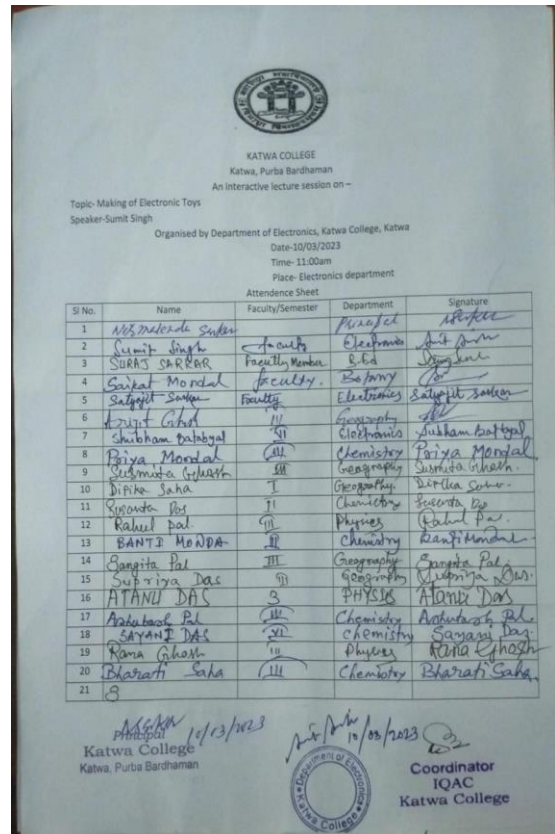 KATWA COLLEGE
Katwa, Purba Bardhaman
An Interactive lecture session on –
Topic- Making of Electronic Toys
Speaker-Sumit Singh
Organised by Department of Electronics, Katwa College, Katwa
Date-10/03/2023
Time- 11:00am
Place- Electronics department
Attendence Sheet
Sl No. Name Faculty/Semester Department Signature
1 Nirmalendu Sarkar Principal
2 Sumit Singh faculty Electronics
3 SURAJ SARKAR Faculty Member B.Ed
4 Saikat Mondal faculty. Botany
5 Satyajit Sarkar Faculty Electronics Satyajit Sarkar
6 Arijit Ghosh III Geography
7 Shubham Batabyal Electronics
8 Priya Mondal III Chemistry Priya Mondal
9 Susmita Ghosh III Geography Susmita Ghosh.
10 Dipika Saha I Geography
11 Susanta Das Chemistry
12 Rahul Pal. III Physics Rahul Pal.
13 BANTI MONDA Chemistry Banti Mondal
14 Sangita Pal III Geography Sangita Pal.
15 Supriya Das Geography Supriya Das.
16 ATANU DAS 3 PHYSICS Atanu Das
17 Ashutosh Pal III Chemistry Ashutosh Pal
18 SAYANI DAS VI Chemistry Sayani Das.
19 Rana Ghosh III Physics Rana Ghosh
20 Bharati Saha III Chemistry Bharati Saha
21
Principal 10/03/2023
Katwa College
Katwa, Purba Bardhaman
10/03/2023
Department of Electronics
Katwa College
Coordinator
IQAC
Katwa College